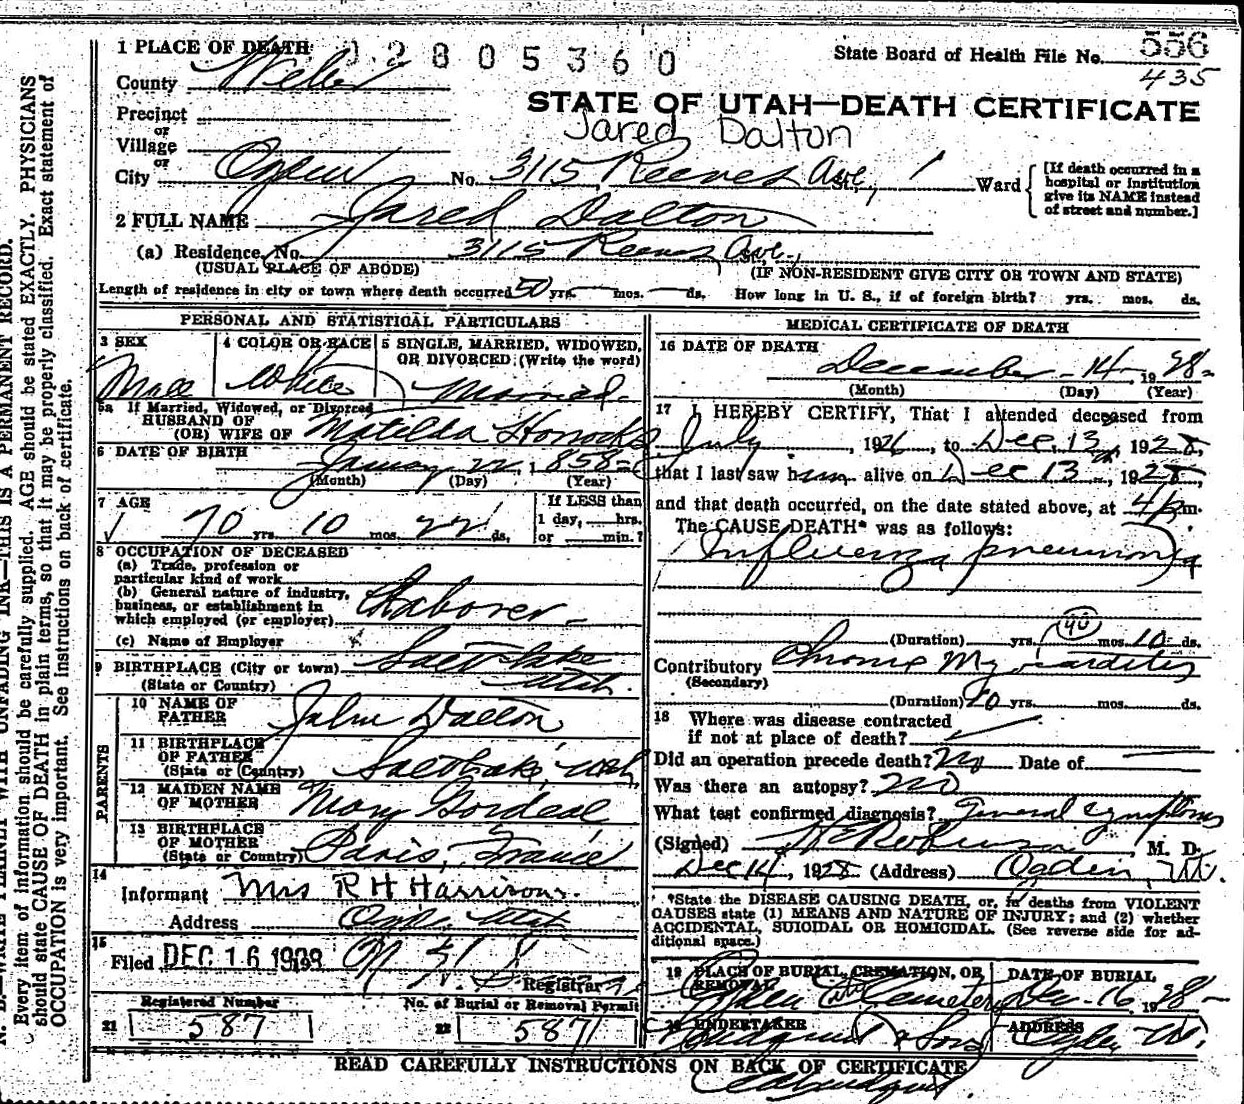 1 PLACE OF DEATH
1 2 8 0 5 3 6 0
State Board of Health File No. 556
435
County Weber
STATE OF UTAH—DEATH CERTIFICATE
Precinct
or
Jared Dalton
Village
or
City Ogden No. 3115 Reeves Ave. St., 1 Ward
[If death occurred in a
hospital or institution
give its NAME instead
of street and number.]
2 FULL NAME Jared Dalton
(a) Residence, No. 3115 Reeves Ave. St.,
(USUAL PLACE OF ABODE) (IF NON-RESIDENT GIVE CITY OR TOWN AND STATE)
Length of residence in city or town where death occurred 50 yrs. — mos. — ds. How long in U. S., if of foreign birth? yrs. mos. ds.
PERSONAL AND STATISTICAL PARTICULARS
3 SEX
Male
4 COLOR OR RACE
White
5 SINGLE, MARRIED, WIDOWED,
OR DIVORCED (Write the word)
Married.
5a If Married, Widowed, or Divorced
HUSBAND OF
(OR) WIFE OF Matilda Horrocks
6 DATE OF BIRTH January 22, 1858
(Month) (Day) (Year)
7 AGE
70 yrs. 10 mos. 22 ds.
If LESS than
1 day, hrs.
or min.?
8 OCCUPATION OF DECEASED
(a) Trade, profession or
particular kind of work
(b) General nature of industry,
business, or establishment in
which employed (or employer) Laborer
(c) Name of Employer
9 BIRTHPLACE (City or town) Salt Lake
(State or Country) Utah.
PARENTS
10 NAME OF
FATHER John Dalton
11 BIRTHPLACE
OF FATHER
(State or Country) Salt Lake, Utah
12 MAIDEN NAME
OF MOTHER Mary
13 BIRTHPLACE
OF MOTHER
(State or Country) Paris, France
14
Informant Mrs R H Harrison.
Address Ogden Utah
15
Filed DEC 16 1928
Registrar
Registered Number
21 587
No. of Burial or Removal Permit
22 5871
MEDICAL CERTIFICATE OF DEATH
16 DATE OF DEATH
December 14 1928
(Month) (Day) (Year)
17 I HEREBY CERTIFY, That I attended deceased from
July, 1926, to Dec. 13, 1928,
that I last saw him alive on Dec 13, 1928,
and that death occurred, on the date stated above, at 4 P m.
The CAUSE DEATH* was as follows:
Influenza pneumonia
(Duration) yrs. mos. 10 ds.
Contributory Chronic Myocarditis
(Secondary)
(Duration) 10 yrs. mos. ds.
18 Where was disease contracted
if not at place of death?
Did an operation precede death? No Date of
Was there an autopsy? No
What test confirmed diagnosis? General symptoms
(Signed) M. D.
Dec 14, 1928 (Address) Ogden, Ut.
*State the DISEASE CAUSING DEATH, or, in deaths from VIOLENT
CAUSES state (1) MEANS AND NATURE OF INJURY; and (2) whether
ACCIDENTAL, SUICIDAL OR HOMICIDAL. (See reverse side for ad-
ditional space.)
19 PLACE OF BURIAL, CREMATION, OR
REMOVAL
Ogden City Cemetery
DATE OF BURIAL
Dec 16, 1928
20 UNDERTAKER
Lindquist & Sons
ADDRESS
Ogden Ut.
READ CAREFULLY INSTRUCTIONS ON BACK OF CERTIFICATE
N. B.—WRITE PLAINLY WITH UNFADING INK—THIS IS A PERMANENT RECORD.
Every item of information should be carefully supplied. AGE should be stated EXACTLY. PHYSICIANS
should state CAUSE OF DEATH in plain terms, so that it may be properly classified. Exact statement of
OCCUPATION is very important. See instructions on back of certificate.